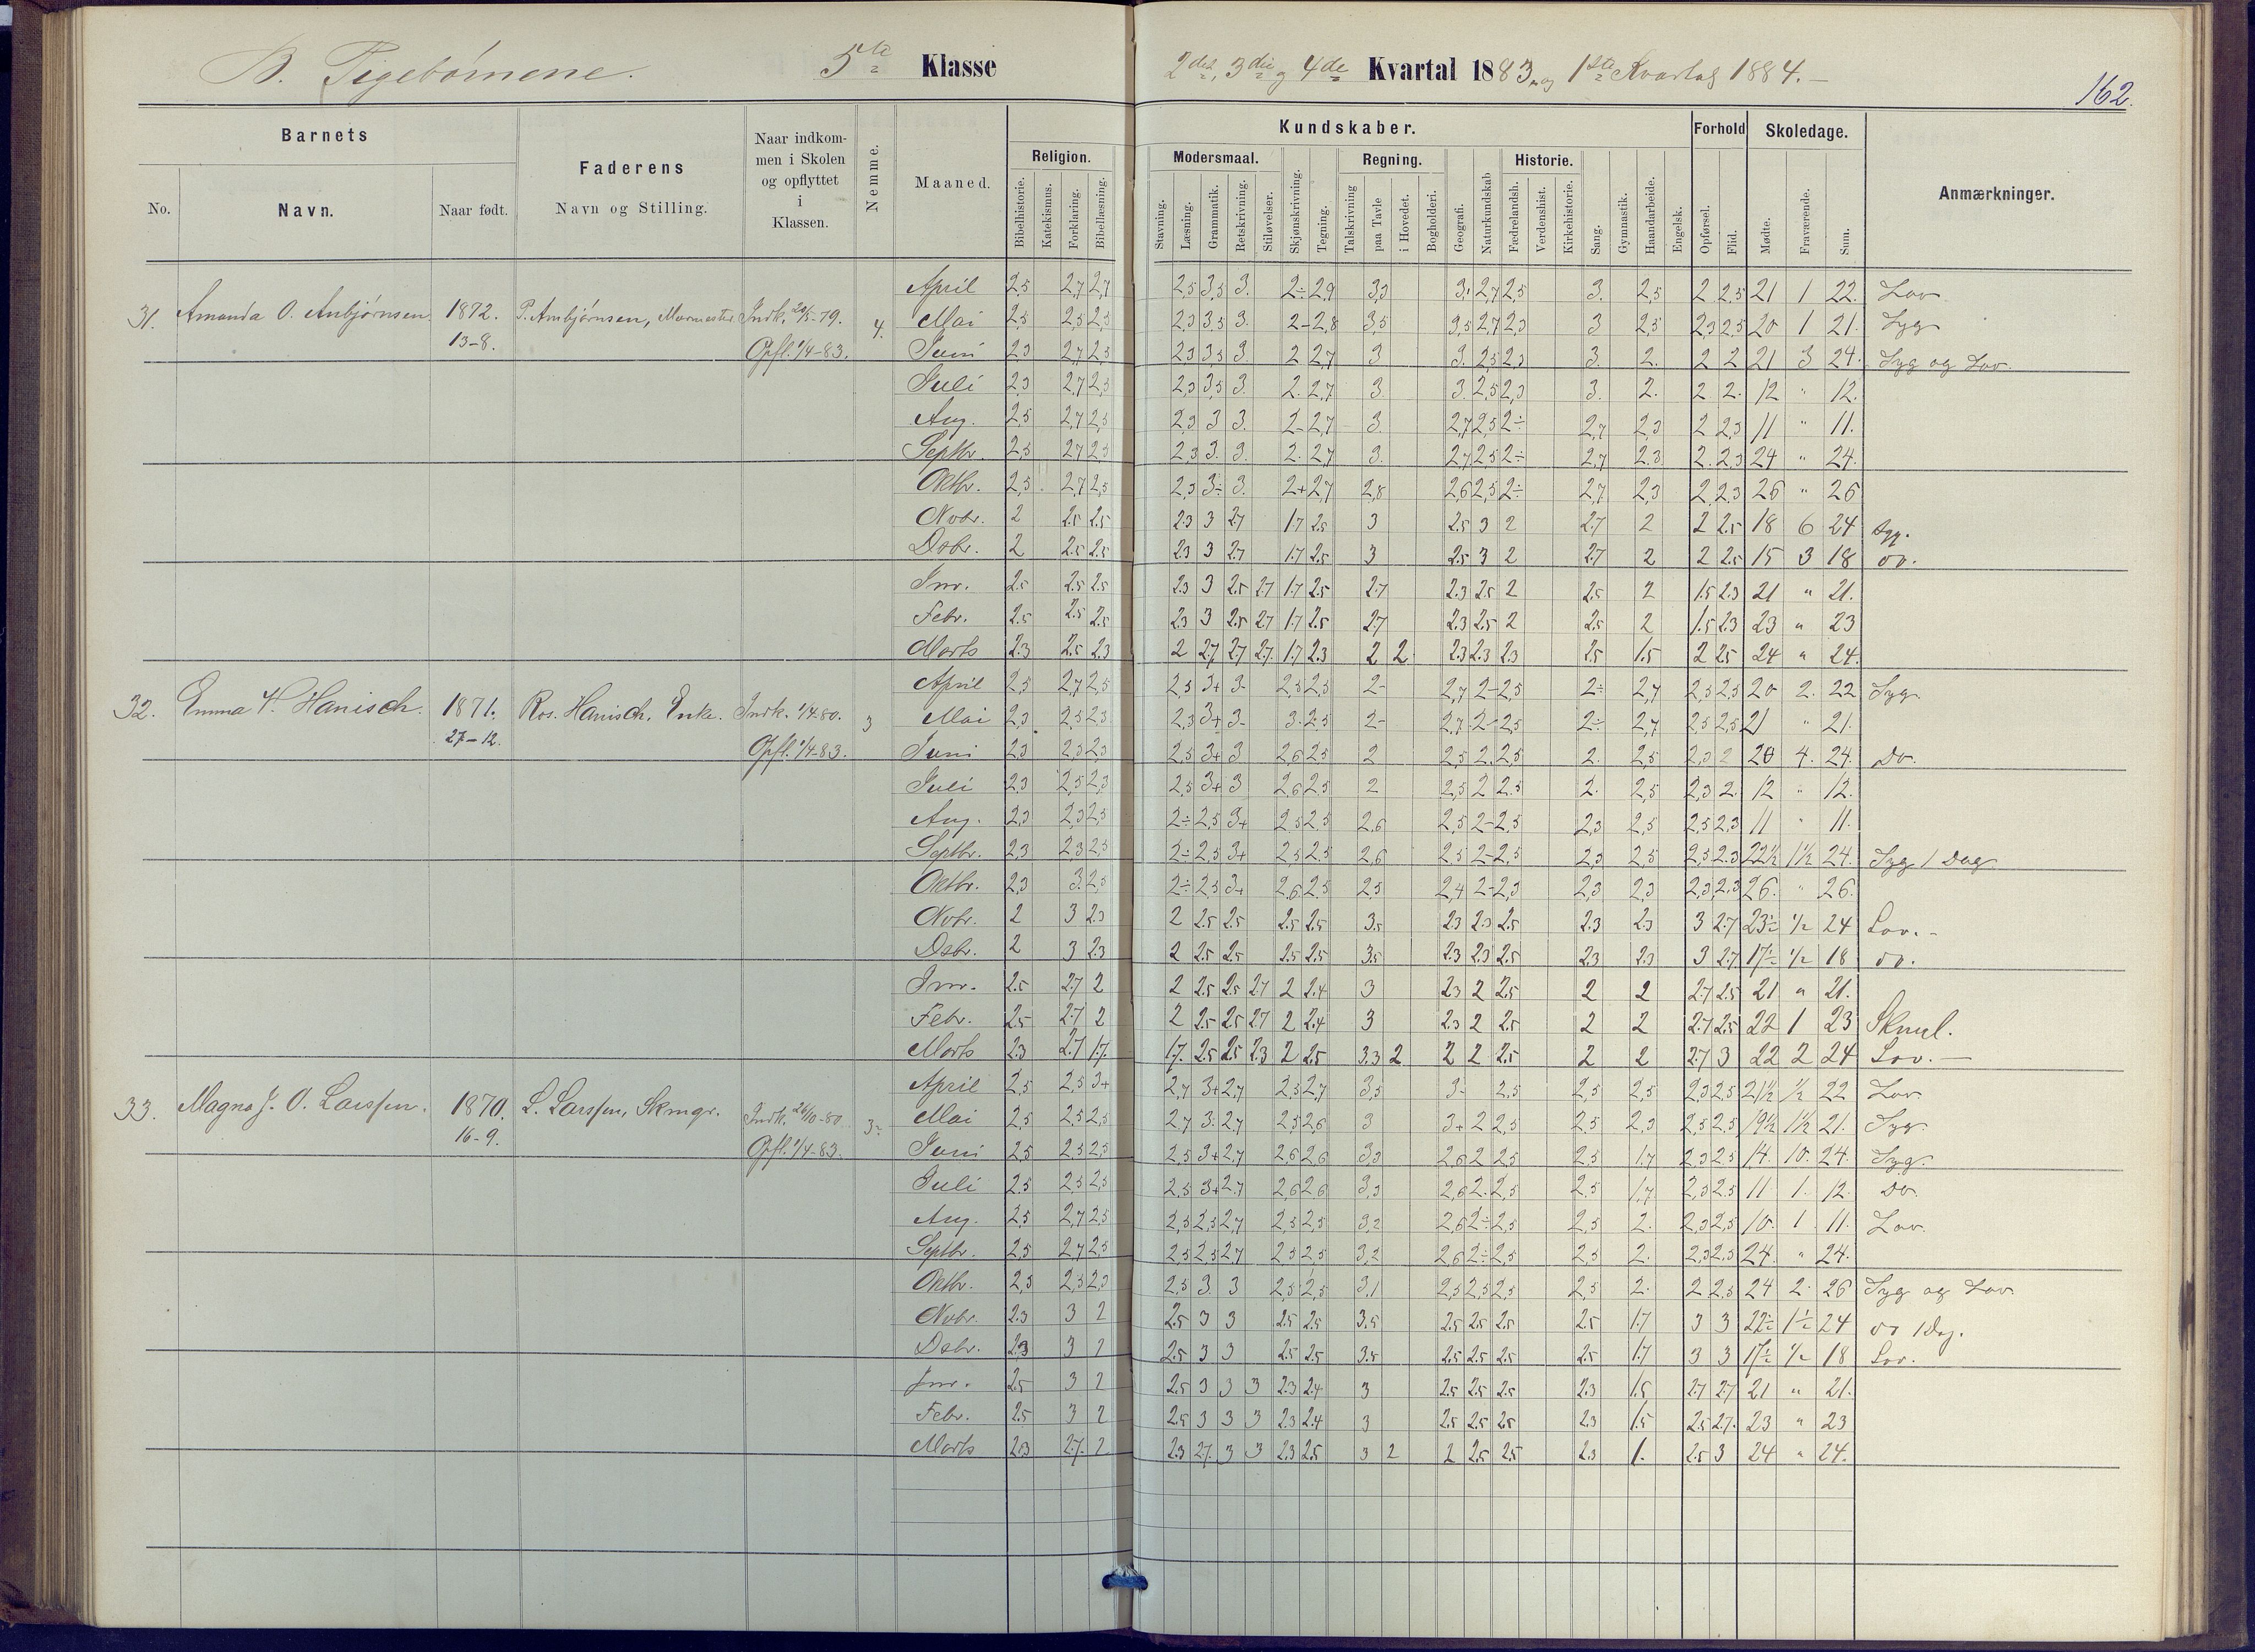 B. Pigebørnene. 5te Klasse 2det, 3die og 4de Kvartal 1883 og 1ste Kvartal 1884.
162.
Barnets
Faderens
Naar indkommen i Skolen og opflyttet i Klassen.
Nemme.
Maaned.
Kundskaber.
Forhold
Skoledage.
Anmærkninger.
No.
Navn.
Naar født.
Navn og Stilling.
Religion.
Modersmaal.
Regning.
Historie.
Bibelhistorie.
Katekismus.
Forklaring.
Bibellæsning.
Stavning.
Læsning.
Grammatik.
Retskrivning.
Stiløvelser.
Skjønskrivning.
Tegning.
Talskrivning
paa Tavle
i Hovedet.
Bogholderi.
Geografi.
Naturkundskab
Fædrelandsh.
Verdenshist.
Kirkehistorie.
Sang.
Gymnastik.
Haandarbeide.
Engelsk.
Opførsel.
Flid.
Mødte.
Fraværende.
Sum.
31. Amanda O. Anbjørnsen. 1872. 13-8. P. Ambjørnsen, Murmester Opfl. 1/4-83. 4.
April 2,5 2,7 2,7 2,5 3,5 3. 2÷ 2,9 2,7 2,5 3. 2,5 2 2,5 21 1 22. Lov
Mai 2,5 2,5 2,5 2,3 3,5 3. 2- 2,8 3,5 3,5 2,7 2,3 3 2,5 2,3 2,5 20 1 21. Syg
Juni 2,3 2,7 2,5 2,3 3,5 3. 2 2,7 3 3. 2,5 2,3 3. 2. 2 2 21 3 24. Syg og Lov.
Juli 2,3 2,7 2,5 2,3 3,5 3. 2. 2,7 3 3. 2,5 2,3 3. 2. 2 2. 12 " 12.
Aug. 2,5 2,7 2,5 2,3 3 3. 2- 2,7 3 2,7 2,5 2÷ 2,7 2,3 2 2,3 11 " 11.
Septbr. 2,5 2,7 2,5 2,3 3. 3. 2. 2,7 3. 2,7 2,5 2÷ 2,7 2.3 2. 2,3 24 " 24.
Oktbr. 2,5 2,7 2,5 2,3 3÷ 3. 2+ 2,7 2,8 2,6 2,5 2÷ 2,7 2,3 2 2,3 26 " 26
Novbr. 2 2.5 2.5 2.3 3 2.7 1.7 2.5 3 2.5 3 2 2.7 2 2 2.5 18 6 24 Syg.
Dsbr. 2 2.5 2.5 2.3 3 2.7 1.7 2.5 3 2.5 3 2 2.7 2 2 2.5 15 3 18 do.
Jnr. 2.5 2.5 2.5 2.3 3 2.5 2.7 1.7 2.5 2.7 2.3 2.5 2 2.5 2 1.5 2.3 21 " 21.
Febr. 2.5 2.5 2.5 2.3 3 2.5 2.7 1.7 2.5 2.7 2.3 2.5 2 2.5 2 1.5 2.3 23 " 23
Marts 2.3 2.5 2.3 2 2.7 2.7 2.7 1.7 2.3 2 2 2.3 2.3 2.3 2.5 1.5 2 2.5 24 " 24.
32. Emma V. Hanisch. 1871. 27-12. Ros. Hanisch, Enke. Indk. 1/4-80. Opfl. 1/4-83. 3
April 2,5 2,7 2,5 2,5 3+ 3- 2,5 2,5 2- 2,7 2- 2,5 2÷ 2,7 2,5 2,5 20 2. 22 Syg
Mai 2,3 2,5 2,3 2,3 3+ 3- 3. 2.5 2- 2,7 2- 2,5 2÷ 2,7 2,5 2,5 21 " 21.
Juni 2,3 2,3 2,3 2,5 3+ 3 2,6 2,5 2 2,5 2. 2,5 2. 2,5 2,3 2 20 4. 24. Do.
Juli 2,3 2,5 2,3 2,5 3+ 3 2,6 2,5 2 2,5 2 2.5 2. 2,5 2,3 2. 12 " 12.
Aug. 2,3 2,3 2,5 2÷ 2,5 3+ 2,5 2,5 2,6 2,5 2- 2,5 2,3 2,5 2,5 2,3 11 " 11.
Septbr. 2,3 2,3 2,5 2÷ 2,5 3+ 2,5 2,5 2,6 2,5 2- 2,5 2,3 2,5 2,5 2.3 22½ 1½ 24. Syg 1 Dag
Oktbr. 2,3 3. 2,5 2÷ 2,5 3+ 2,6 2,5 2,5 2,4 2- 2,3 2,3 2,3 2,3 2,3 26. " 26.
Novbr. 2 3 2.3 2 2.5 2.5 2.5 2.5 3.5 2.3 2.3 2.5 2.3 2.3 3 2.7 23½ ½ 24 Lov.
Dsbr. 2 3 2.3 2 2.5 2.5 2.5 2.5 3.5 2.3 2.3 2.5 2.3 2.3 3 2.7 17½ ½ 18 do.
Jnr. 2.5 2.7 2 2 2.5 2.5 2.7 2 2.4 3 2.3 2 2.5 2 2 2.7 2.5 21 " 21.
Febr. 2.5 2.7 2 2 2.5 2.5 2.7 2 2.4 3 2.3 2 2.5 2 2 2.7 2.5 22 1 23 Skml.
Marts 2.3 2.7 1.7. 1.7. 2.5 2.5 2.3 2 2.5 3.3 2 2 2 2.5 2 2 2.7 3 22 2 24 Lov.
33. Magna J. O. Larssen. 1870. 16-9. L. Larssen, Skmgr. Indk. 26/10-80. Opfl. 1/4-83. 3-
April 2,5 2,5 3+ 2,7 3+ 2,7 2,5 2,7 3,5 3- 2.5 2,5 2,5 2,3 2,5 21½ ½ 22 Lov
Mai 2,5 2,5 2,5 2,7 3. 2,7 2,5 2,6 3 3+ 2 2,5 2,5 2,3 2,5 2,5 19½ 1½ 21. Syg.
Juni 2,5 2,5 2,5 2,5 3+ 2,7 2,6 2,6 3,3 2,6 2 2,5 2,5 1,7 2,3 2,5 14. 10. 24. Syg.
Juli 2.5 2,5 2,5 2,5 3+ 2,7 2,6 2,6 3,3 2,6 2. 2,5 2,5 1,7 2,3 2.5 11 1. 12. Do.
Aug. 2,5 2,7 2,5 2,5 2,5 2,7 2,5 2,5 3,2 2,6 2÷ 2,5 2,5 2. 2,3 2,5 10. 1. 11. Lov.
Septbr. 2,5 2,7 2,5 2,5 2,5 2,7 2,5 2,5 3,2 2,6 2÷ 2,5 2,5 2. 2,3 2,3 24. " 24.
Oktbr. 2,5 2,5 2,3 2,5 3. 3 2,5 2,5 3,1 2,5 2,5 2,5 2,5 2. 2 2,5 24 2. 26 Syg og Lov
Novbr. 2.3 3 2 2.5 3 3 2.5 2.5 3.5 2.5 2.5 2.5 2.5 1.7 3 3 22½ 1½ 24 do 1 Dag.
Dsbr. 2.3 3 2 2.5 3 3 2.5 2.5 3.5 2.5 2.5 2.5 2.5 1.7 3 3 17½ ½ 18 Lov.
Jnr. 2.5 3 2 2.5 3 3 3 2.3 2.4 3 2.5 2.5 2.5 2.3 1.5 2.7 2.7 21 " 21.
Febr. 2.5 3 2 2.5 3 3 3 2.3 2.4 3 2.5 2.5 2.5 2.3 1.5 2.5 2.7. 23 " 23
Marts 2.3 2.7. 2 2.3 2.7. 3 3 2.3 2.5 3 2 2 2.5 2.5 2.3 1. 2.5 3 24 " 24.